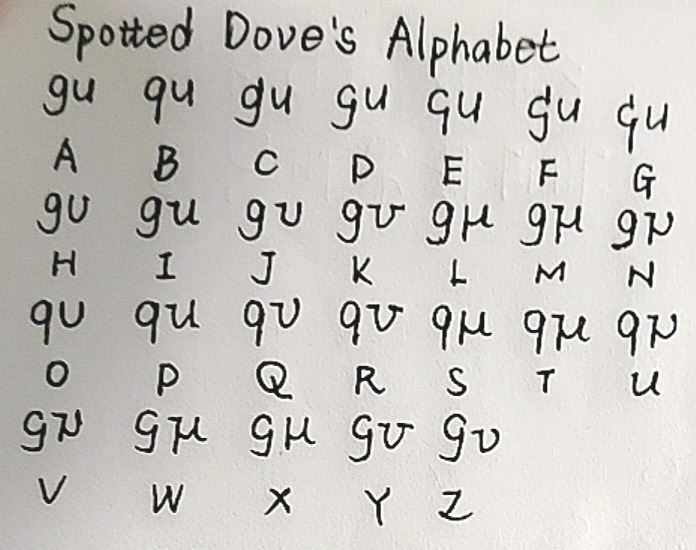 Spotted Dove's Alphabet
gu qu gu gu qu gu qu
A B C D E F G
gu gu gυ gv gμ gμ gμ
H I J K L M N
qu qu qυ qv qμ qμ qμ
O P Q R S T U
gμ gμ gμ gv gυ
V W X Y Z